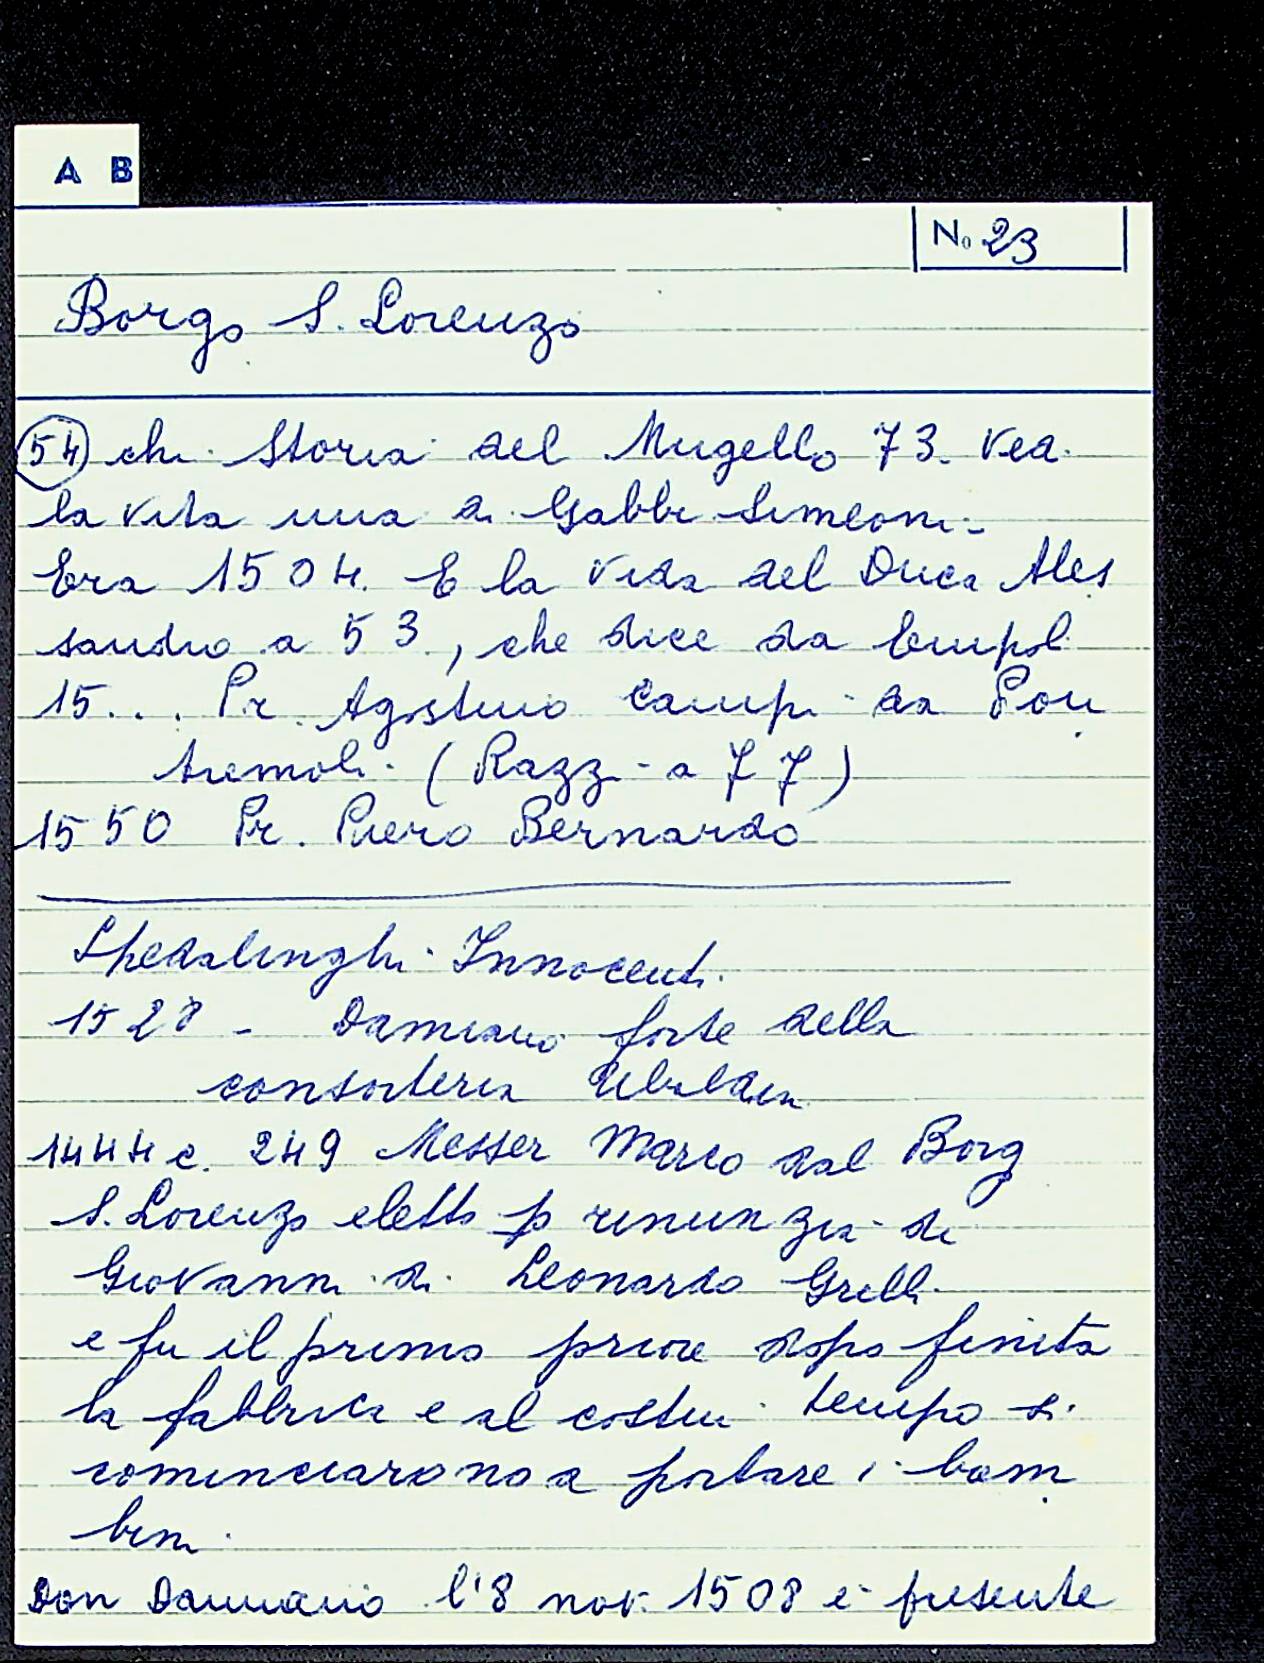 A B
No 23
Borgo S. Lorenzo
54) chi. Storia del Mugello 73. Ved.
la vita mia di Gabbr. Simeoni -
Era 1504. E la vida del Duca Ales
sandro a 53, che dice da
15... Pr. Agostino Campi da Pon
tremoli. (Razzi a 77)
1550 Pr. Piero Bernardo
Spedalinghi Innocenti.
1528 - Damiano forte della
consorteria Ubaldin
1444 c. 249 Messer Marco dal Borg
S. Lorenzo eletto p rinunzia di
Giovanni di Leonardo Grilli
e fu il primo priore dopo finita
la fabbrica e al costui tempo si
cominciarono a portare i bam
bini.
Don Damiano l'8 nov. 1508 è presente